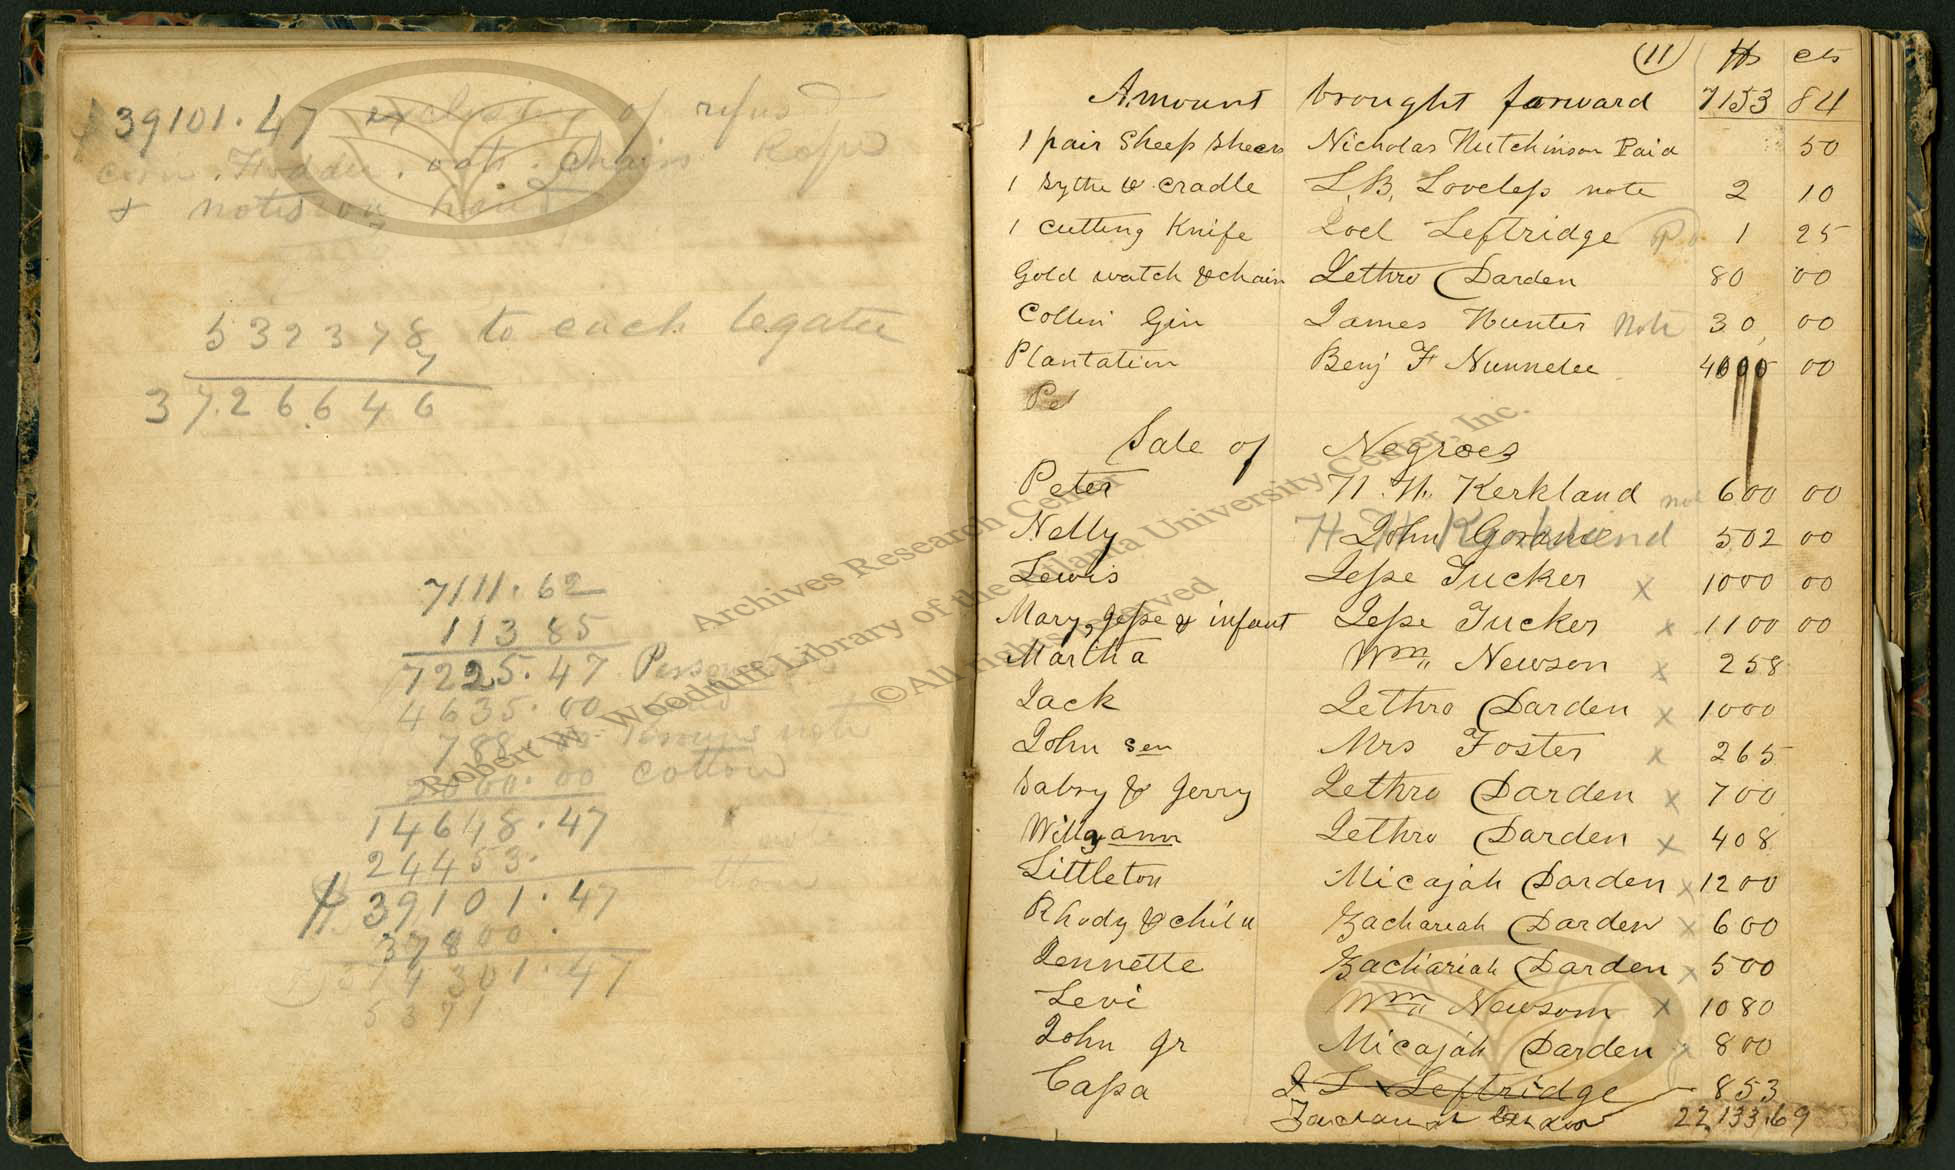 $39101.47 exclusive of refus
corn. Fodder. oats. chairs Rope
& notes on hand
532378 to each legatee
7
37.26646
7111.62
113 85
7225.47
4635.00
788
note
2000.00 cotton
14648.47
24453.
$39101.47
37800.
301.47
5371
(11) $s cts
Amount brought forward 7153 84
1 pair Sheep Shears Nicholas Hutchinson Paid 50
1 Sythe & cradle L.B. Loveless note 2 10
1 cutting Knife Joel Leftridge Pd 1 25
Gold watch & chain Jethro Darden 80 00
Cotten Gin James Hunter Note 30 00
Plantation Benj F Nunnelee 00
Pe
Sale of Negroes
Peter H. H. Kerkland not 600 00
Nelly John 502 00
Lewis Jesse Tucker x 1000 00
Mary, Jesse & infant Jesse Tucker x 1100 00
Martha Wm Newson x 258
Jack Jethro Darden x 1000
John Sen Mrs Foster x 265
Sabry & Jerry Jethro Darden x 700
Willyann Jethro Darden x 408
Littleton Micajah Darden x 1200
Rhody & child Zachariah Darden x 600
Jennette Zachariah Darden x 500
Levi Wm Newsom x 1080
John Jr Micajah Darden x 800
Cassa J L Leftridge 853
22,133.69
Archives Research Center
Robert W. Woodruff Library of the Atlanta University Center, Inc.
©All rights reserved